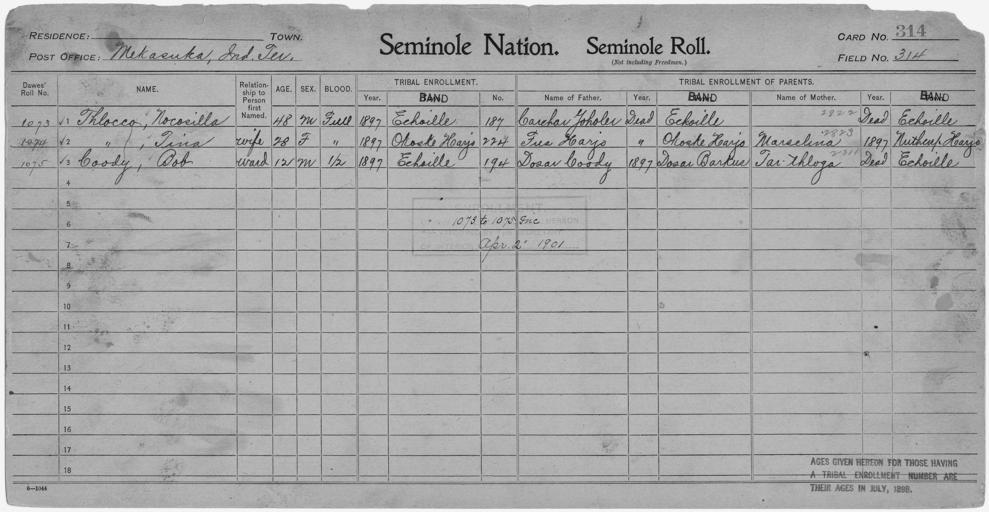 RESIDENCE: TOWN.
POST OFFICE: Mekasuka, Ind. Ter.
Seminole Nation. Seminole Roll.
(Not including Freedmen.)
CARD NO. 314
FIELD NO. 314
Dawes' Roll No. NAME. Relationship to Person first Named. AGE. SEX. BLOOD. TRIBAL ENROLLMENT. TRIBAL ENROLLMENT OF PARENTS.
Year. BAND No. Name of Father. Year. BAND Name of Mother. Year. BAND
1073 √1 Thlocco, Nocosilla 48 M Full 1897 Echoille 187 Carchar Yoholer Dead Echoille 2822 Dead Echoille
1074 √2 " , Tina wife 28 F " 1897 Ohoske Harjo 224 Fus Harjo " Ohoske Harjo Marselina 2823 1897 Nuthcup Harjo
1075 √3 Coody, Bob ward 12 M 1/2 1897 Echoille 194 Dosar Coody 1897 Dosar Barkus Tar-thloga Dead Echoille
4
5
ENROLLMENT
1073 to 1075 Inc HEREON
6
Apr. 2" 1901
7
8
9
10
11
12
13
14
15
16
17
18
AGES GIVEN HEREON FOR THOSE HAVING
A TRIBAL ENROLLMENT NUMBER ARE
THEIR AGES IN JULY, 1898.
6—1044